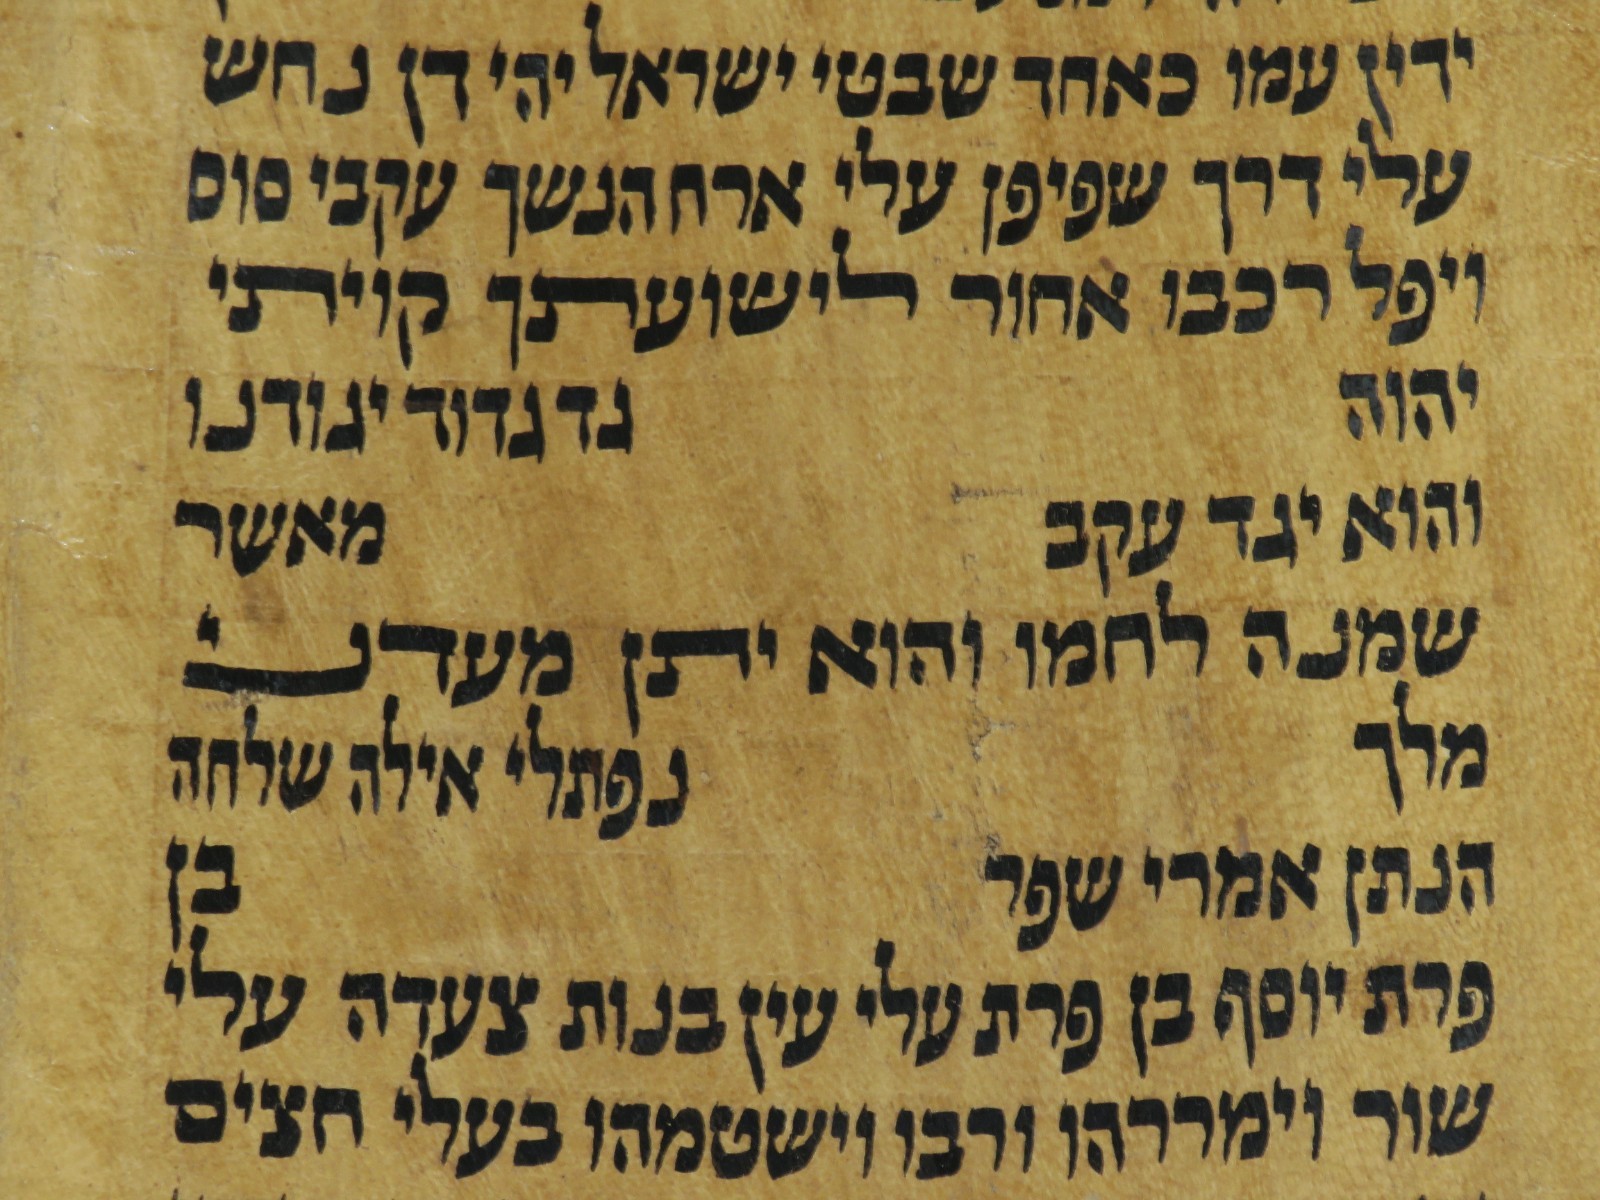 ידין עמו כאחד שבטי ישראל יהי דן נחש
עלי דרך שפיפן עלי ארח הנשך עקבי סוס
ויפל רכבו אחור לישועתך קויתי
יהוה גד גדוד יגודנו
והוא יגד עקב מאשר
שמנה לחמו והוא יתן מעדני
מלך נפתלי אילה שלחה
הנתן אמרי שפר בן
פרת יוסף בן פרת עלי עין בנות צעדה עלי
שור וימררהו ורבו וישטמהו בעלי חצים